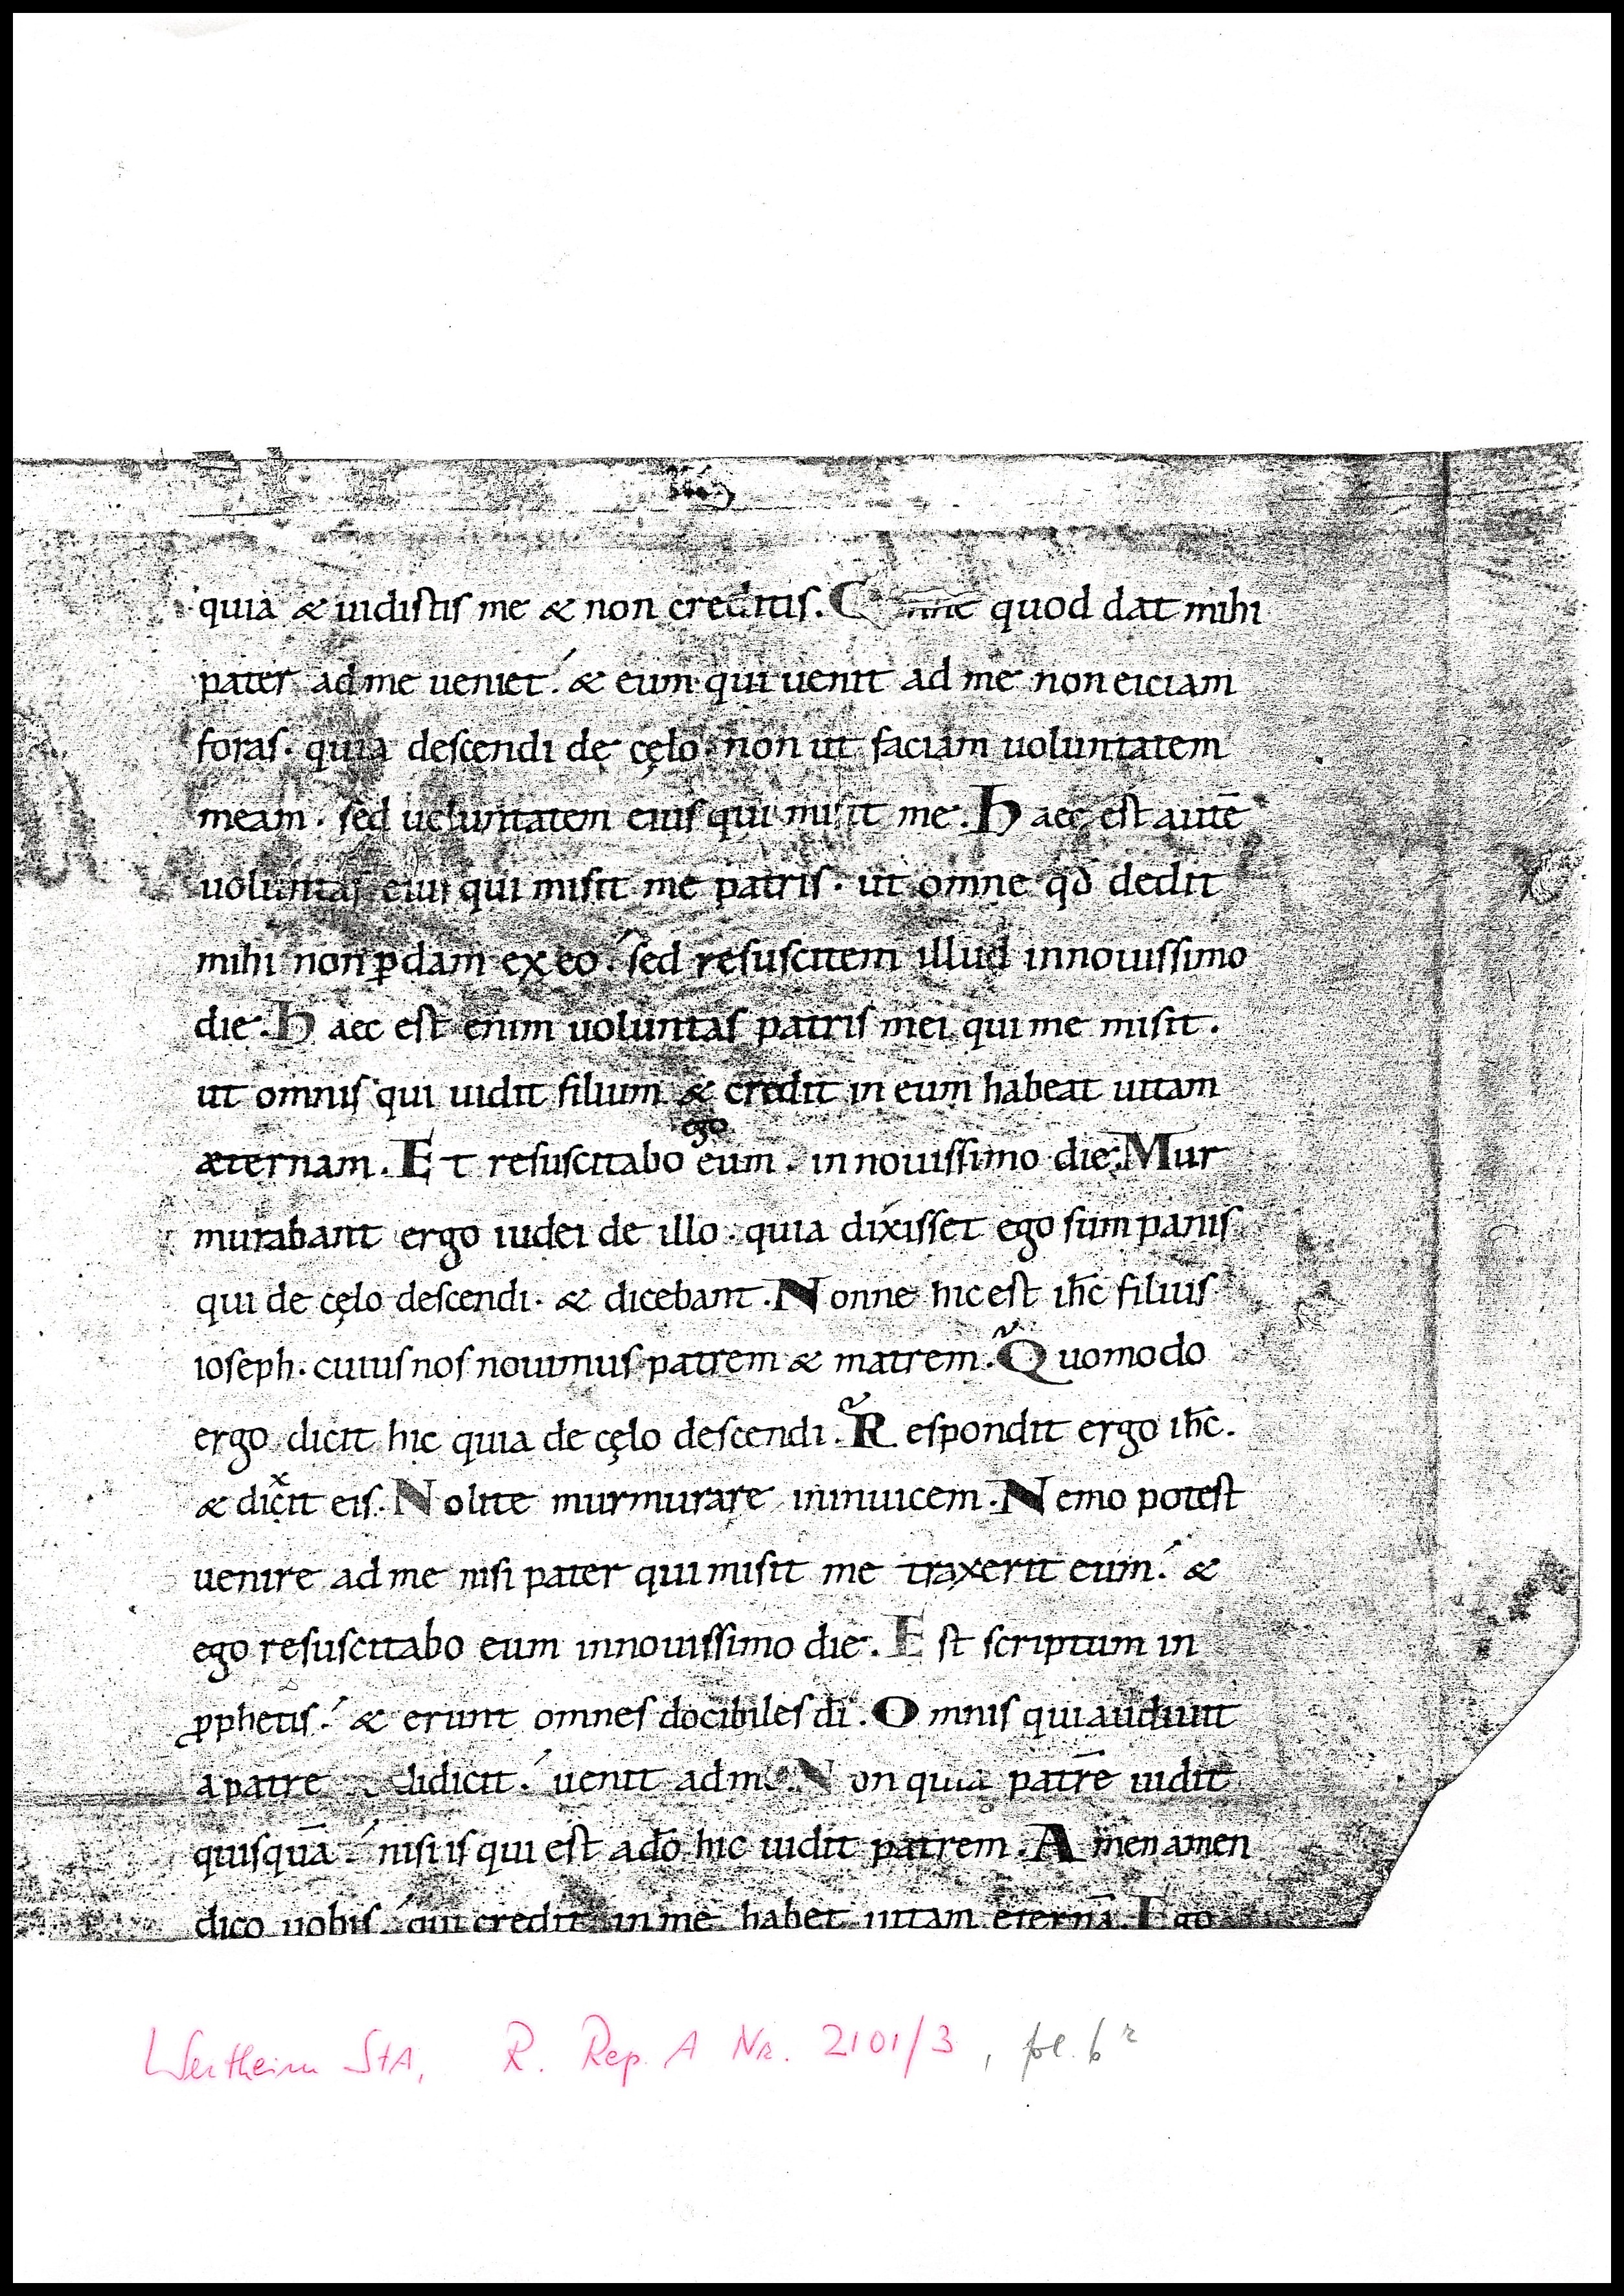 quia & uidiſtis me & non creditiſ. quod dat mihi
pater ad me ueniet. & eum qui uenit ad me non eiciam
foraſ. quia deſcendi de cęlo. non ut faciam uoluntatem
meam. ſed uoluntatem eiuſ qui miſit me. Haec eſt autē
uoluntaſ eiuſ qui miſit me patriſ. ut omne qđ dedit
mihi non ꝑdam ex eo. ſed reſuſcitem illud in nouiſſimo
die. Haec eſt enim uoluntaſ patriſ mei qui me miſit.
ut omniſ qui uidit filium & credit in eum habeat uitam
ego
æternam. Et reſuſcitabo eum. in nouiſſimo die. Mur
murabant ergo iudei de illo. quia dixiſſet ego ſum paniſ
qui de cęlo deſcendi. & dicebant. Nonne hic eſt ihc̄ filiuſ
ioſeph. cuiuſ noſ nouimuſ patrem & matrem. Quomodo
ergo dicit hic quia de cęlo deſcendi. Reſpondit ergo ihc̄.
x
& dicit eiſ. Nolite murmurare in inuicem. Nemo poteſt
uenire ad me niſi pater qui miſit me traxerit eum. &
ego reſuſcitabo eum in nouiſſimo die. Eſt scriptum in
ꝓphetiſ. & erunt omneſ docibileſ dī. Omniſ qui audiuit
a patre didicit. uenit ad me. Non quia patrē uidit
quiſquā. niſi iſ qui eſt a dō hic uidit patrem. Amen amen
dico uobiſ. qui credit in me habet uitam eternā. Ego
Wertheim StA, R. Rep. A Nr. 2101/3, fol. 6r